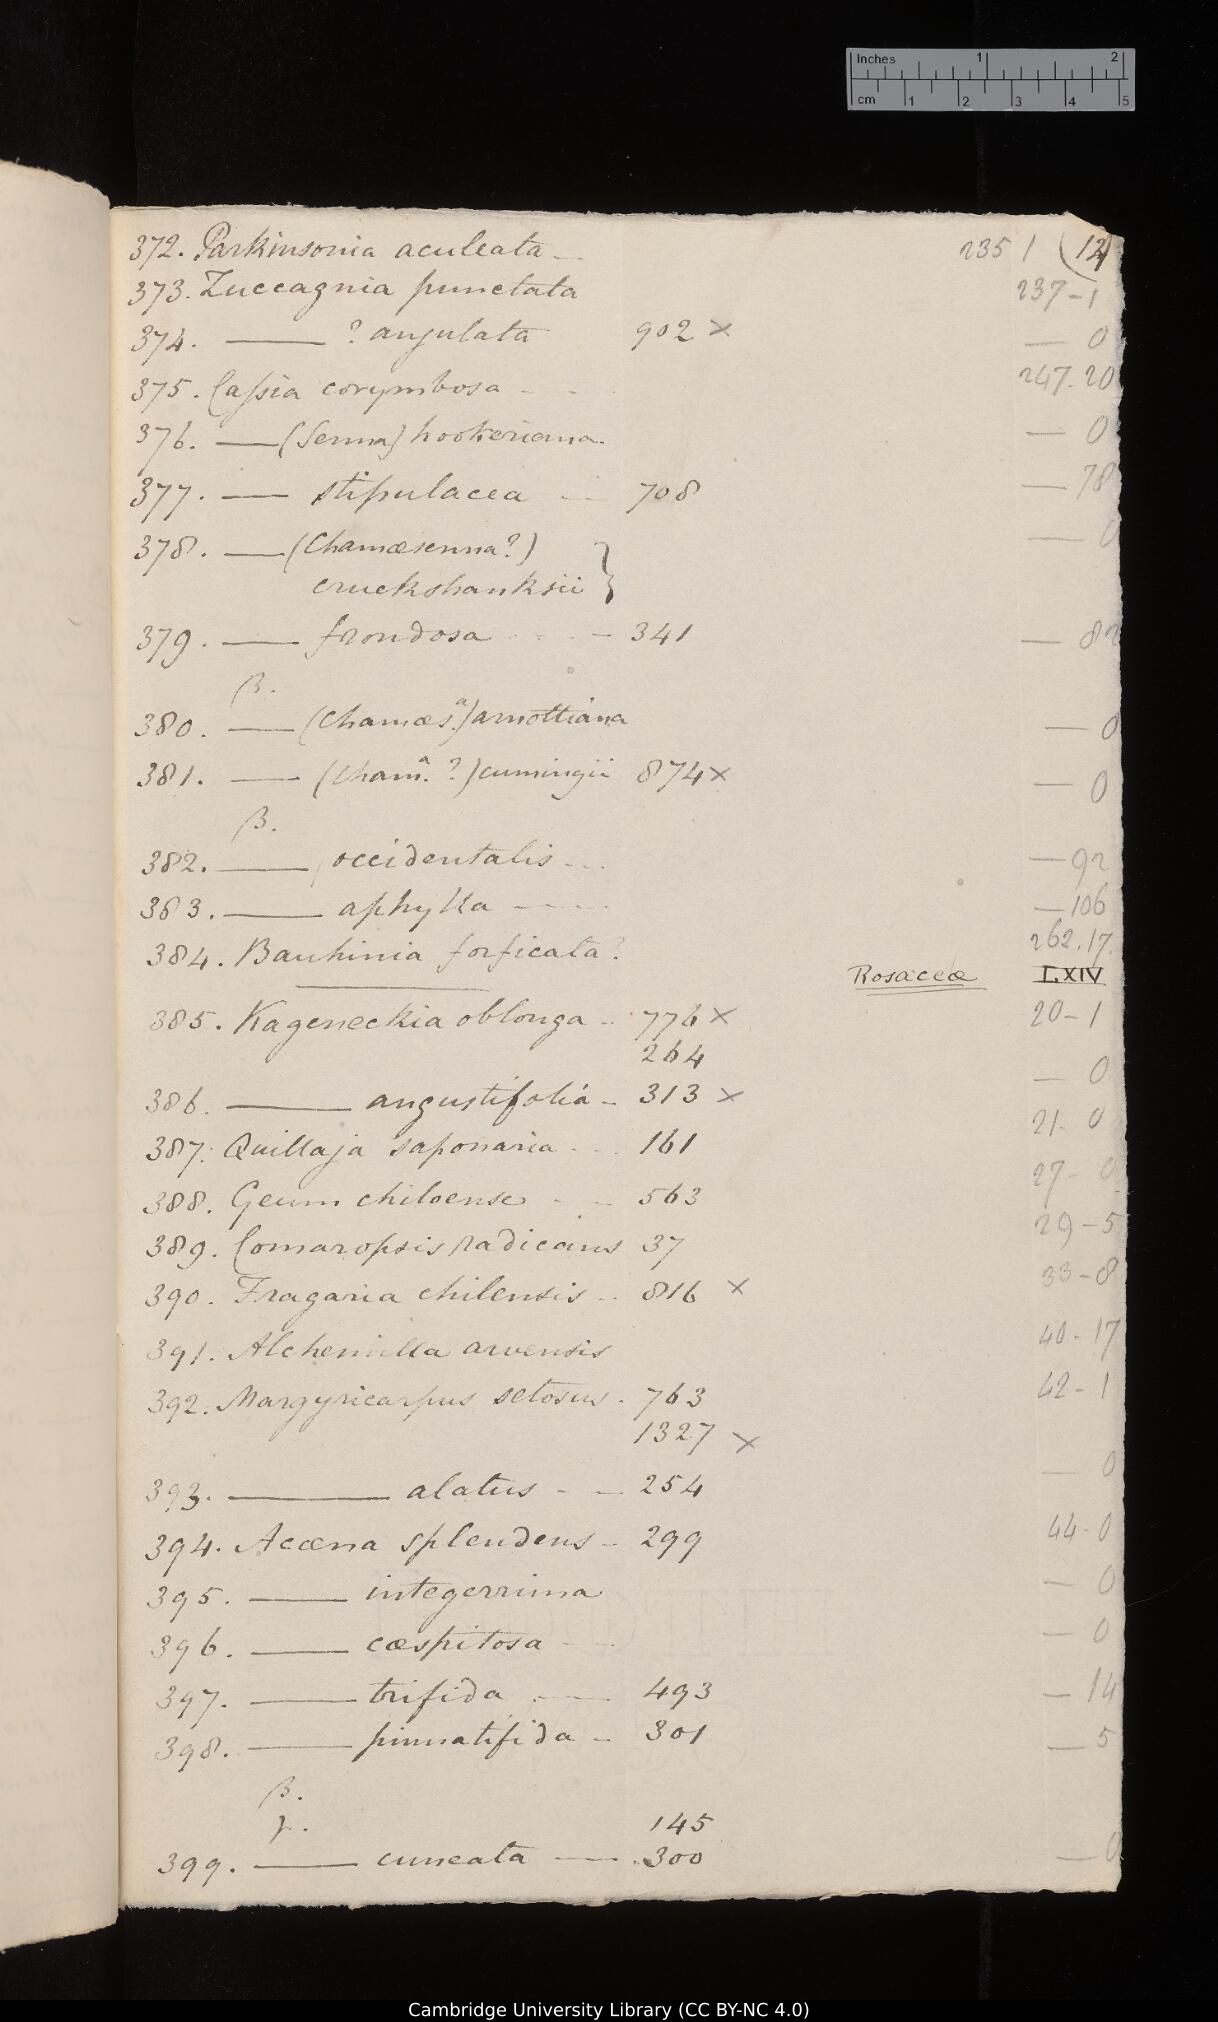 Inches 1 2
cm 1 2 3 4 5
372. Parkinsonia aculeata 235 1 (12)
373. Zuccagnia punctata 237-1
374. —— ? angulata 902 × — 0
375. Caſsia corymbosa - - 247.20
376. —— (Senna) hookeriana. — 0
377. —— stipulacea — 708 — 78
378. —— (Chamæsenna?) — 0
cruckshanksii }
379. —— frondosa - - — 341 — 82
β.
380. —— (Chamæs.a) arnottiana — 0
381. —— (Cham.a ?) cumingii 874 × — 0
β.
382. —— occidentalis - - — 92
383. —— aphylla - - - — 106
384. Bauhinia forficata? 262.17.
Rosaceæ LXIV
385. Kageneckia oblonga - 776 × 20-1
264
386. —— angustifolia - 313 × — 0
387. Quillaja saponaria - - 161 21- 0
388. Geum chiloense - - 563 27- 0
389. Comaropsis radicans 37 29-5
390. Fragaria chilensis - 816 × 33-8
391. Alchemilla arvensis 40-17
392. Margyricarpus setosus - 763 42-1
1327 ×
393. —— alatus - — 254 — 0
394. Acæna splendens - 299 44-0
395. —— integerrima — 0
396. —— cæspitosa - - — 0
397. —— trifida — 493 — 14
398. —— pinnatifida - 301 — 5
β.
γ. 145
399. —— cuneata — 300 — 0
Cambridge University Library (CC BY-NC 4.0)